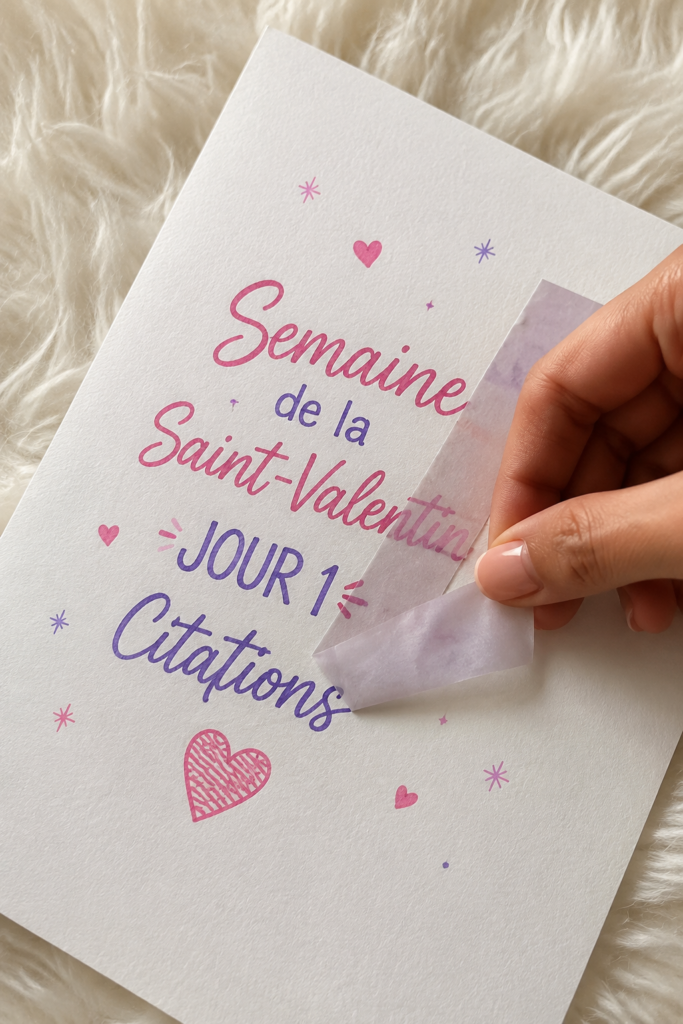 Semaine
de la
Saint-Valentin
JOUR 1
Citations